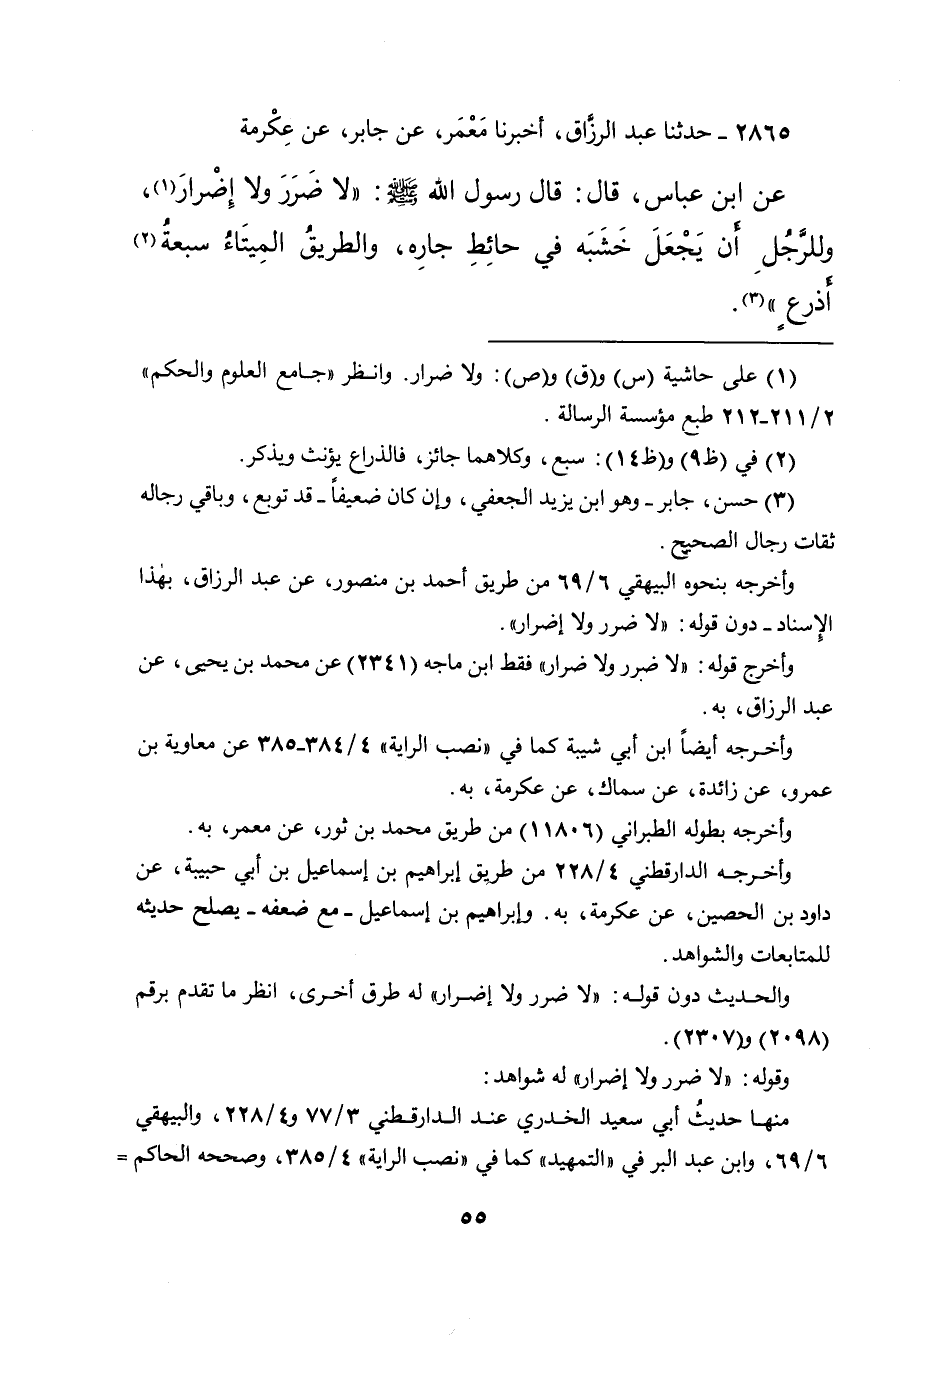 ٢٨٦٥ ـ حدثنا عبد الرزَّاق، أخبرنا مَعْمَر، عن جابر، عن عِكْرمة
عن ابن عباس، قال: قال رسول الله ﷺ: «لا ضَرَرَ ولا إِضْرارَ(١)،
وللرَّجُلِ أَن يَجْعَلَ خَشَبَه في حائِطِ جارِه، والطريقُ المِيتَاءُ سبعةُ(٢)
أَذرعٍ»(٣).
(١) على حاشية (س) و(ق) و(ص): ولا ضرار. وانظر «جامع العلوم والحكم»
٢١١/٢ـ٢١٢ طبع مؤسسة الرسالة.
(٢) في (ظ٩) و(ظ١٤): سبع، وكلاهما جائز، فالذراع يؤنث ويذكر.
(٣) حسن، جابر ـ وهو ابن يزيد الجعفي، وإن كان ضعيفاً ـ قد توبع، وباقي رجاله
ثقات رجال الصحيح.
وأخرجه بنحوه البيهقي ٦٩/٦ من طريق أحمد بن منصور، عن عبد الرزاق، بهٰذا
الإِسناد ـ دون قوله: «لا ضرر ولا إضرار».
وأخرج قوله: «لا ضرر ولا ضرار» فقط ابن ماجه (٢٣٤١) عن محمد بن يحيى، عن
عبد الرزاق، به.
وأخرجه أيضاً ابن أبي شيبة كما في «نصب الراية» ٣٨٤/٤ـ٣٨٥ عن معاوية بن
عمرو، عن زائدة، عن سماك، عن عكرمة، به.
وأخرجه بطوله الطبراني (١١٨٠٦) من طريق محمد بن ثور، عن معمر، به.
وأخرجه الدارقطني ٢٢٨/٤ من طريق إبراهيم بن إسماعيل بن أبي حبيبة، عن
داود بن الحصين، عن عكرمة، به. وإبراهيم بن إسماعيل ـ مع ضعفه ـ يصلح حديثه
للمتابعات والشواهد.
والحديث دون قوله: «لا ضرر ولا إضرار» له طرق أخرى، انظر ما تقدم برقم
(٢٠٩٨) و(٢٣٠٧).
وقوله: «لا ضرر ولا إضرار» له شواهد:
منها حديثُ أبي سعيد الخدري عند الدارقطني ٧٧/٣ و٢٢٨/٤، والبيهقي
٦٩/٦، وابن عبد البر في «التمهيد» كما في «نصب الراية» ٣٨٥/٤، وصححه الحاكم =
٥٥